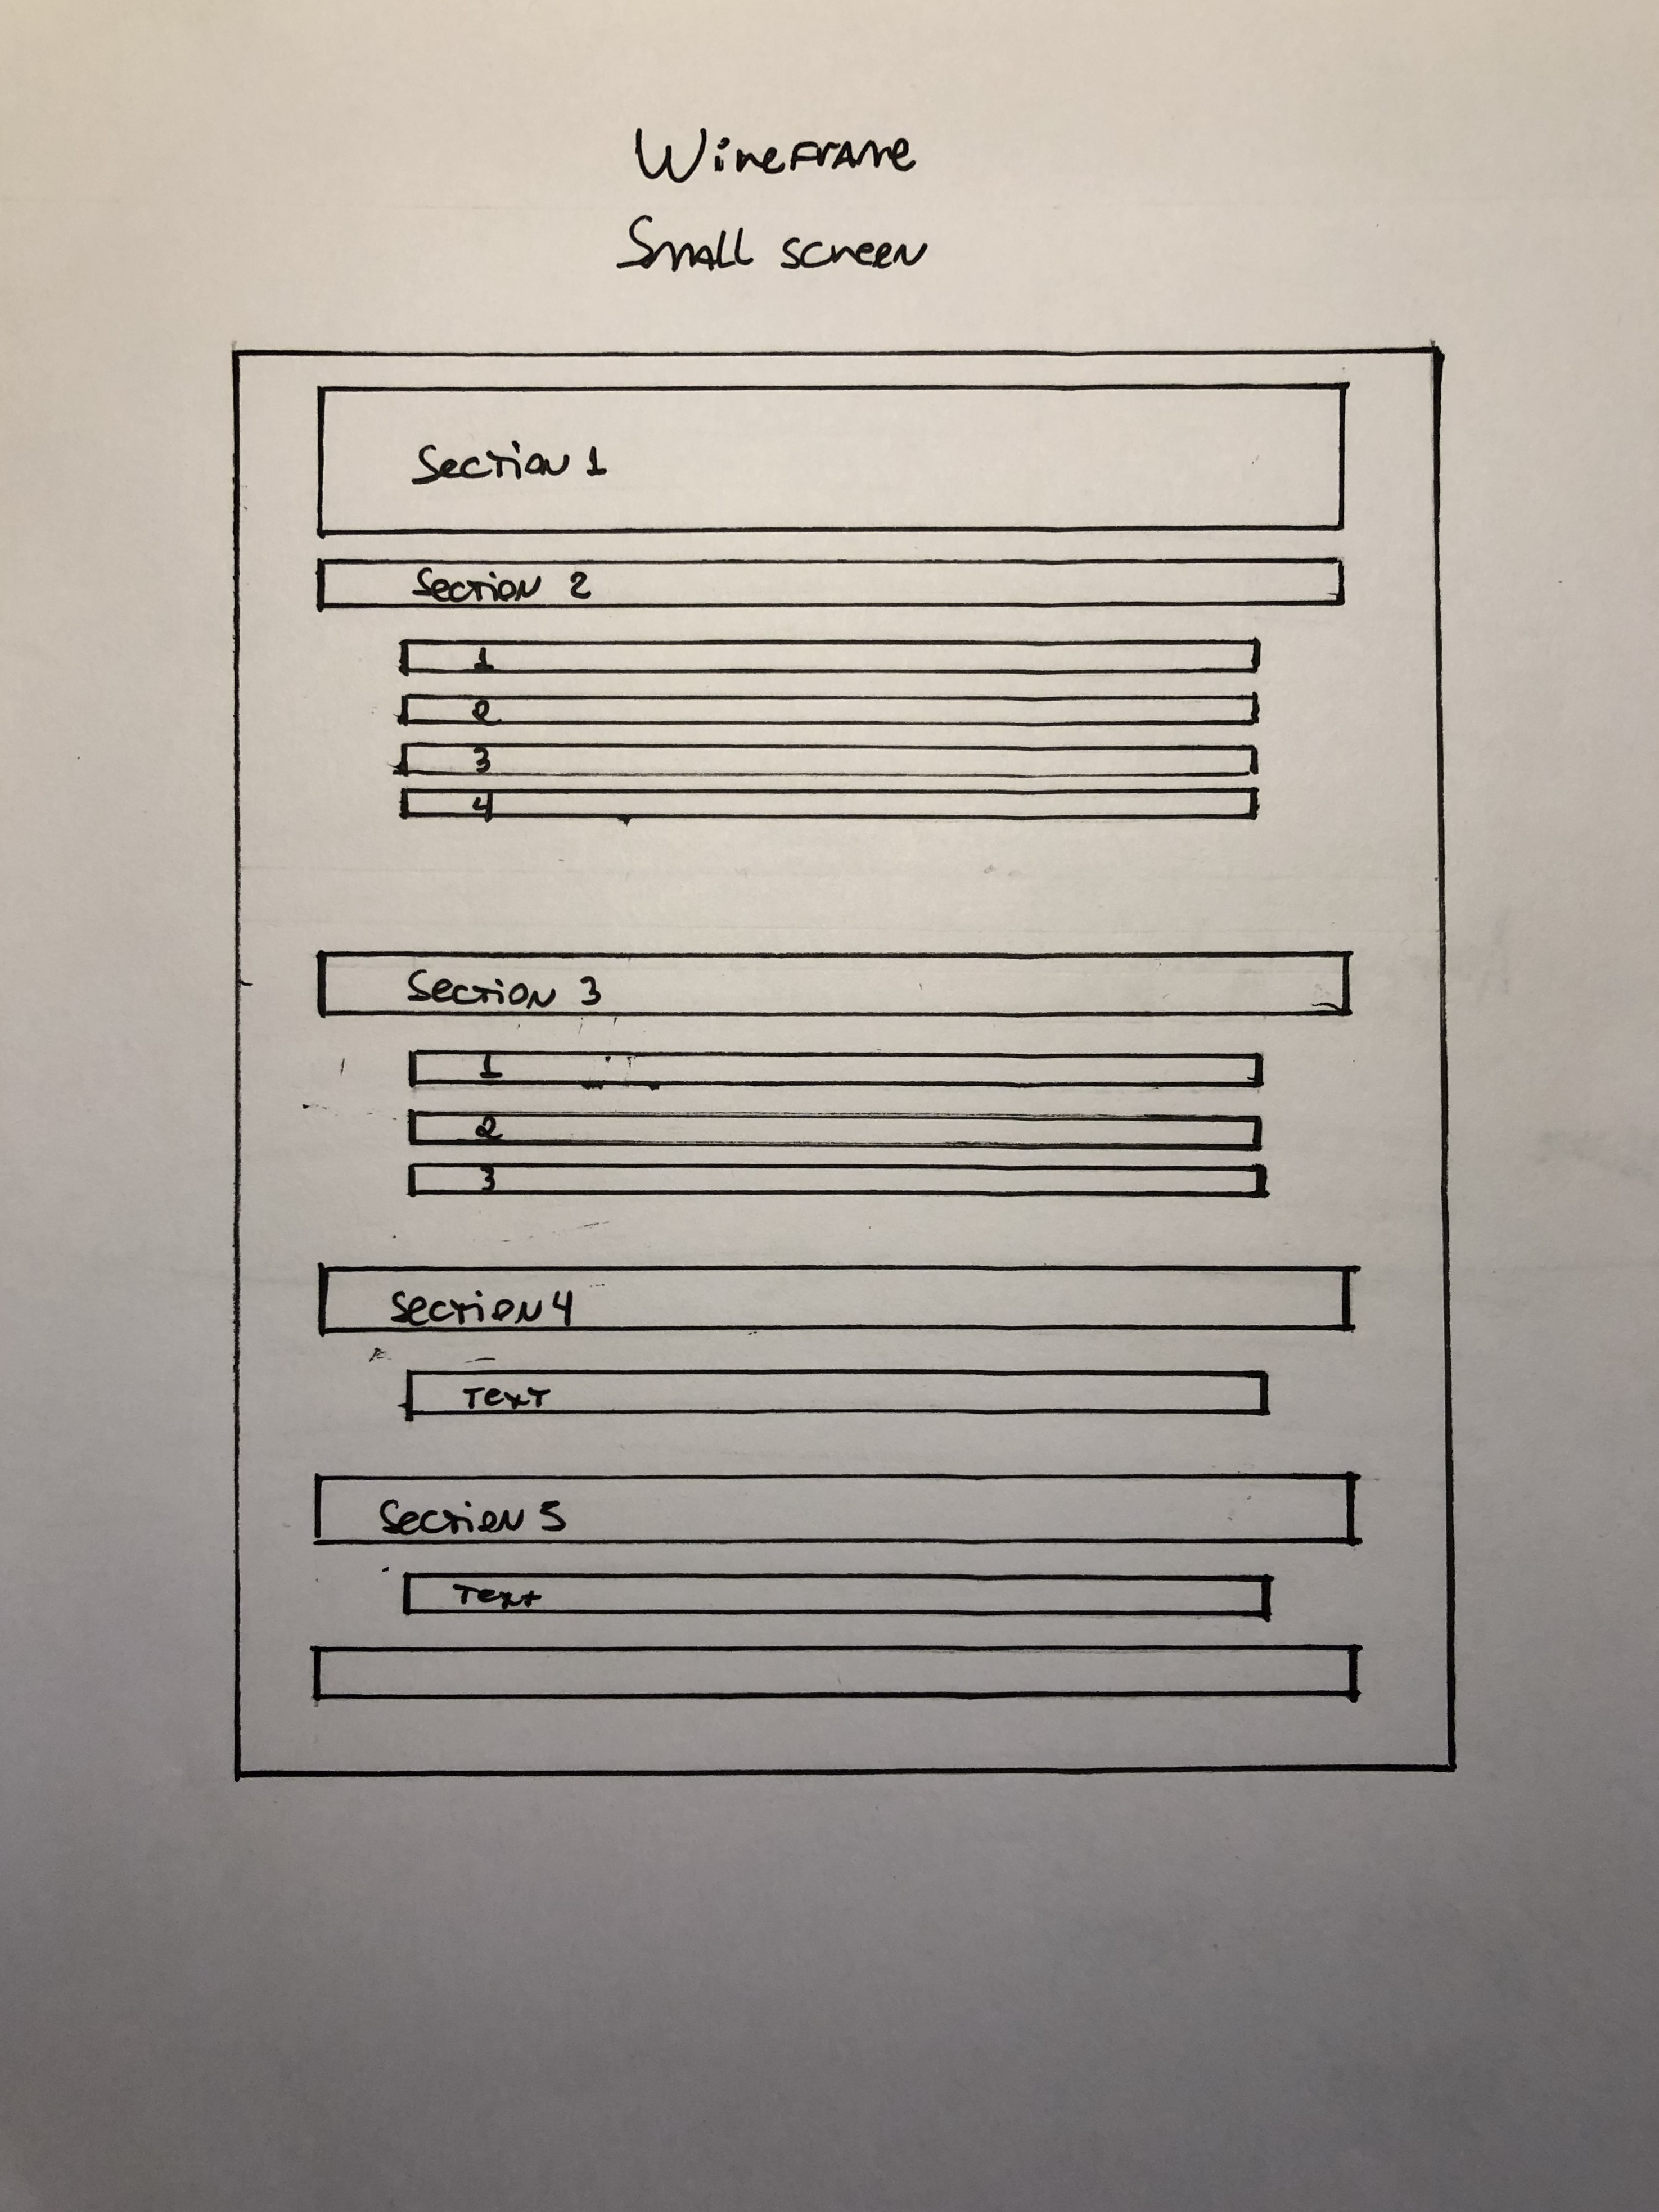 Wireframe
Small screen
Section 1
Section 2
1
2
3
4
Section 3
1
2
3
Section 4
Text
Section 5
Text